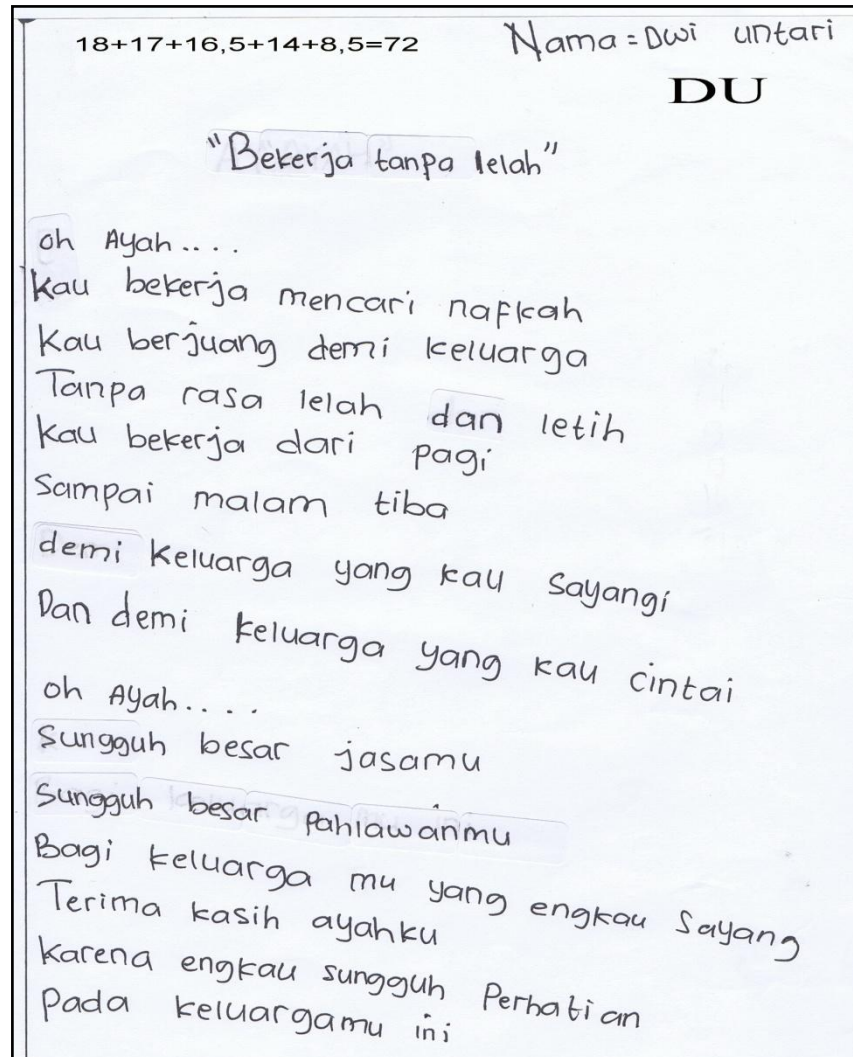 18+17+16,5+14+8,5=72
Nama = Dwi untari
DU
"Bekerja tanpa lelah"
oh Ayah....
Kau bekerja mencari nafkah
Kau berjuang demi keluarga
Tanpa rasa lelah dan letih
Kau bekerja dari pagi
Sampai malam tiba
demi Keluarga yang kau Sayangi
Dan demi keluarga yang kau cintai
oh Ayah....
Sungguh besar jasamu
Sungguh besar Pahlawanmu
Bagi keluarga mu yang engkau Sayang
Terima kasih ayahku
Karena engkau sungguh Perhatian
Pada keluargamu ini